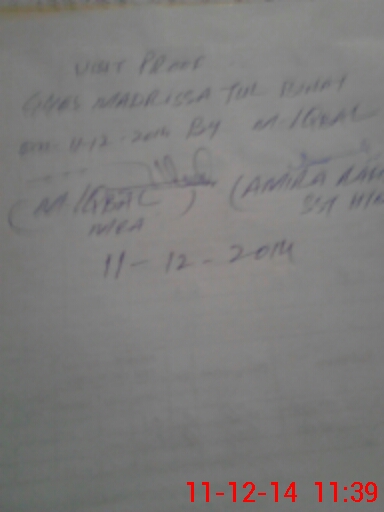 VISIT PROOF
GHSS MADRISSA TUL BINAT
ON. 11-12-2014 BY M. IQBAL
(M. IQBAL) (AMIRA
MEA SST
11-12-2014
11-12-14 11:39